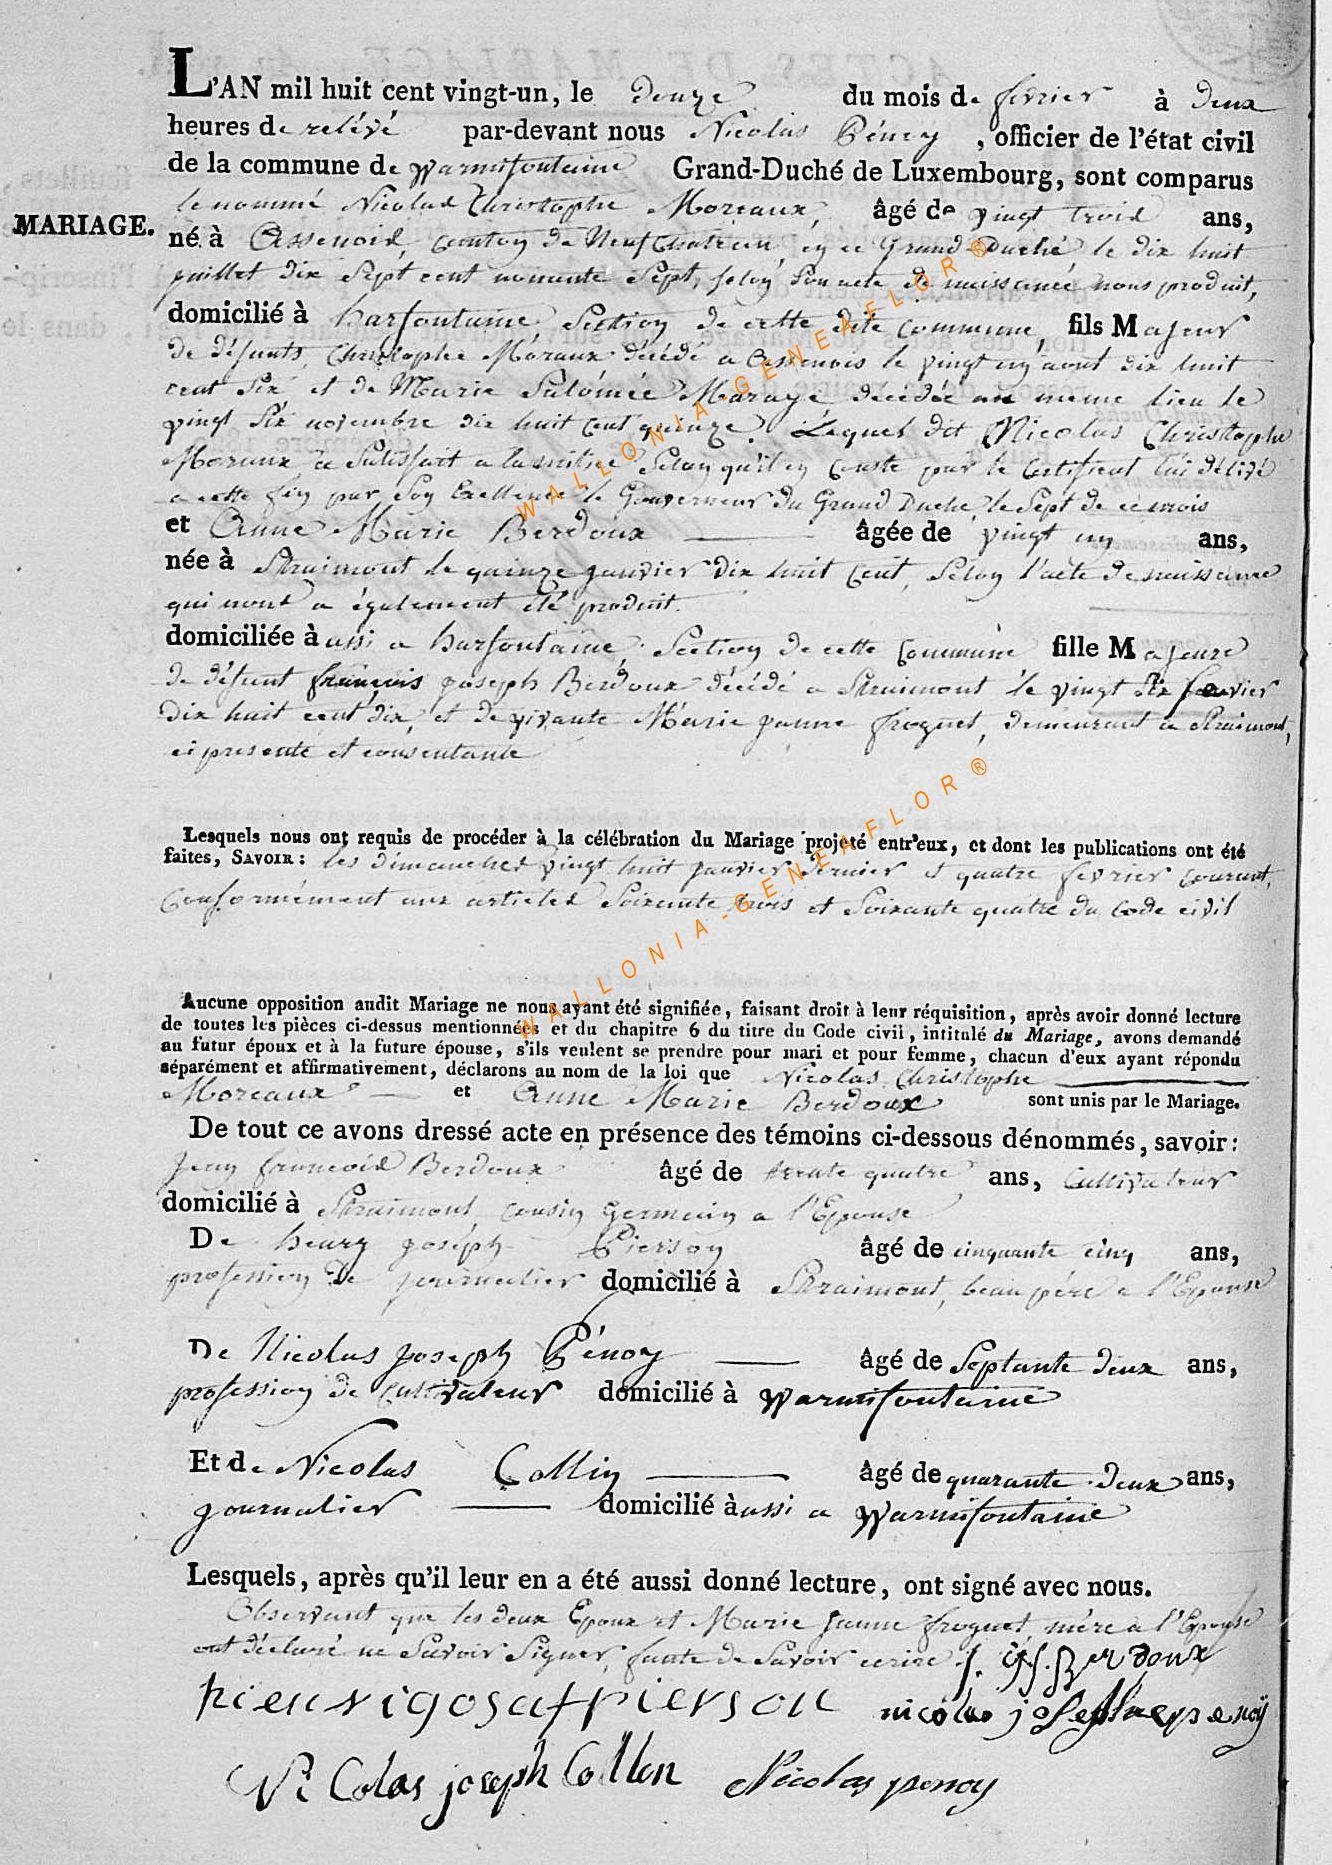 L'AN mil huit cent vingt-un, le douze du mois de fevrier à deux
heures de relévé par-devant nous Nicolas Pénoy, officier de l'état civil
de la commune de Warmifontaine Grand-Duché de Luxembourg, sont comparus
le nommé Nicolas Christophe Moreaux, âgé de vingt trois ans,
MARIAGE.
né à Assenois canton de Neufchateau, en ce Grand-Duché le dix huit
juillet dix sept cent nonante sept, selon son acte de naissance nous produit,
domicilié à harfontaine, Section de cette dite commune, fils Majeur
de défunts, Christophe Moraux décédé a Assenois le vingt un aout dix huit
cent six et de Marie Salómée Maraye décédée au meme lieu le
vingt six novembre dix huit cent quinze. Lequel dit Nicolas Christophe
Moraux a Satisfait a la milice Selon qu'il en conste par le certificat lui délivré
a cette fin par Son Exellence le Gouverneur du Grand Duché, le Sept de ce mois
et Anne Marie Berdoux âgée de vingt un ans,
née à Straimont le quinze janvier dix huit cent, Selon l'acte de naissance
qui nous a également été produit.
domiciliée à aussi a harfontaine, Section de cette commune fille Majeure
de défunt françois joseph Berdoux décédé a Straimont le vingt six
dix huit cent dix, et de vivante Marie janne froguet, demeurant a Straimont,
ci présente et consentante
Lesquels nous ont requis de procéder à la célébration du Mariage projeté entr'eux, et dont les publications ont été
faites, SAVOIR : les dimanches vingt huit janvier dernier et quatre fevrier courant,
Conformément aux articles Soixante trois et Soixante quatre du Code civil
Aucune opposition audit Mariage ne nous ayant été signifiée, faisant droit à leur réquisition, après avoir donné lecture
de toutes les pièces ci-dessus mentionnées et du chapitre 6 du titre du Code civil, intitulé du Mariage, avons demandé
au futur époux et à la future épouse, s'ils veulent se prendre pour mari et pour femme, chacun d'eux ayant répondu
séparément et affirmativement, déclarons au nom de la loi que Nicolas Christophe
Moreaux et Anne Marie Berdoux sont unis par le Mariage.
De tout ce avons dressé acte en présence des témoins ci-dessous dénommés, savoir :
Jean françois Berdoux âgé de trente quatre ans, Cultivateur
domicilié à Straimont cousin germain a l'Epouse
De henry joséph Pierson âgé de cinquante cinq ans,
profession de journalier domicilié à Straimont, beau pére a l'Epouse
De Nicolas joseph Pénoy âgé de Septante deux ans,
profession de cultivateur domicilié à Warmifontaine
Et de Nicolas Collin âgé de quarante deux ans,
journalier domicilié à aussi a Warmifontaine
Lesquels, après qu'il leur en a été aussi donné lecture, ont signé avec nous.
Observant que les deux Epoux et Marie Janne froguet, mère a l'Epouse
ont déclaré ne Savoir Signer, faute de Savoir écrire. J. f. Berdoux
pierson nicolas joseph penoÿ
Nicolas joseph Collen Nicolas penoy
WALLONIA-GENEAFLOR®
WALLONIA-GENEAFLOR®